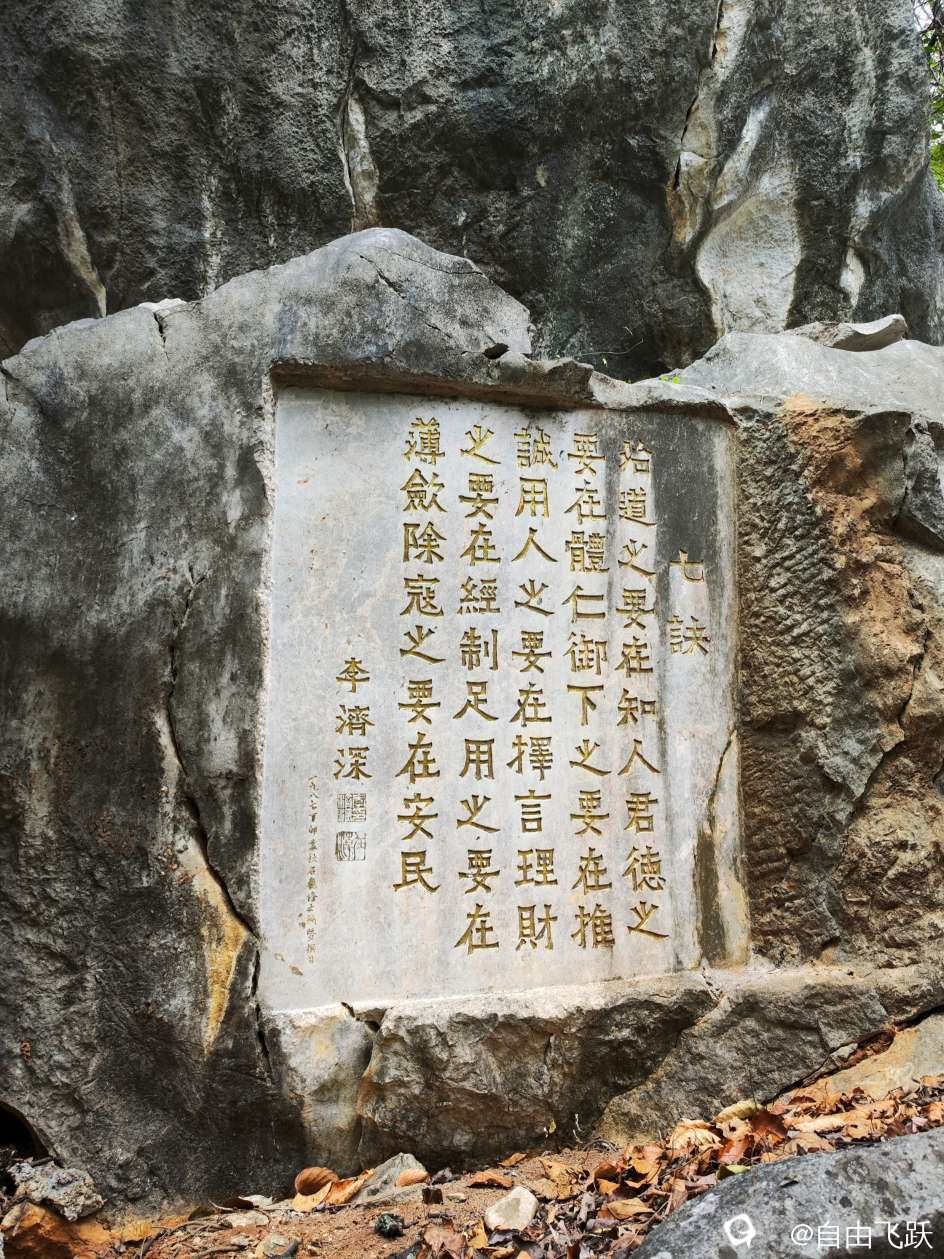 七訣
治道之要在知人君德之
要在體仁御下之要在推
誠用人之要在擇言理財
之要在經制足用之要在
薄歛除寇之要在安民
李濟深
一九八七丁卯
@自由飞跃